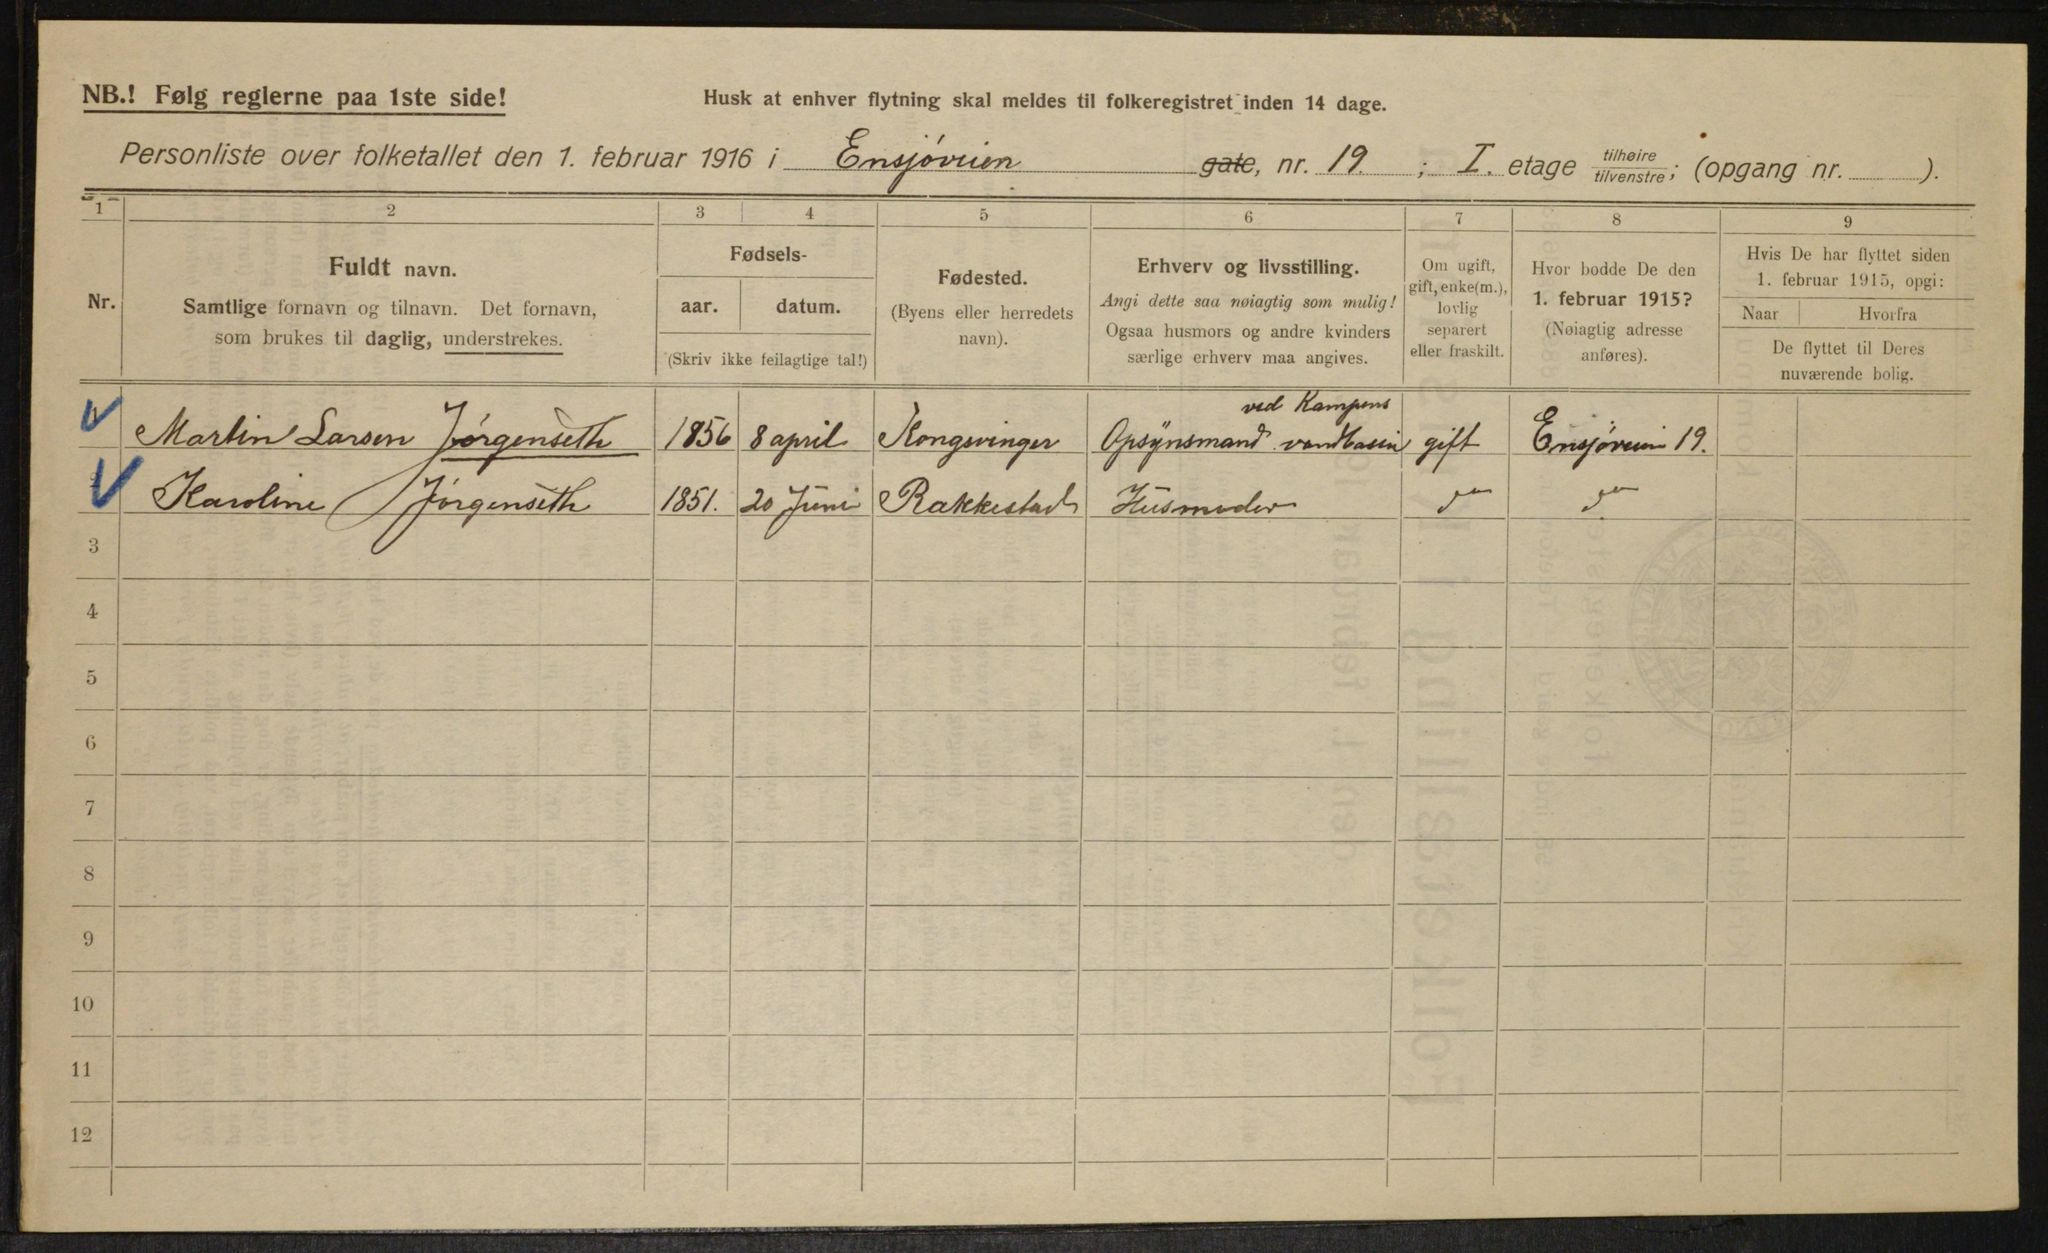 NB.! Følg reglerne paa 1ste side!
Husk at enhver flytning skal meldes til folkeregistret inden 14 dage.
Personliste over folketallet den 1. februar 1916 i Ensjøveien gate, nr. 19. ; I. etage tilhøire tilvenstre; (opgang nr. ).
1 2 3 4 5 6 7 8 9
Nr.
Fuldt navn.
Samtlige fornavn og tilnavn. Det fornavn,
som brukes til daglig, understrekes.
Fødsels-
aar. datum.
(Skriv ikke feilagtige tal!)
Fødested.
(Byens eller herredets
navn).
Erhverv og livsstilling.
Angi dette saa nøiagtig som mulig!
Ogsaa husmors og andre kvinders
særlige erhverv maa angives.
Om ugift,
gift, enke(m.),
lovlig
separert
eller fraskilt.
Hvor bodde De den
1. februar 1915?
(Nøiagtig adresse
anføres).
Hvis De har flyttet siden
1. februar 1915, opgi:
Naar Hvorfra
De flyttet til Deres
nuværende bolig.
ved Kampens
Martin Larsen Jørgenseth 1856 8 april Kongsvinger Opsynsmand vandbasin gift Ensjøveien 19.
Karoline Jørgenseth 1851. 20 Juni Rakkestad Husmoder do do
3
4
5
6
7
8
9
10
11
12